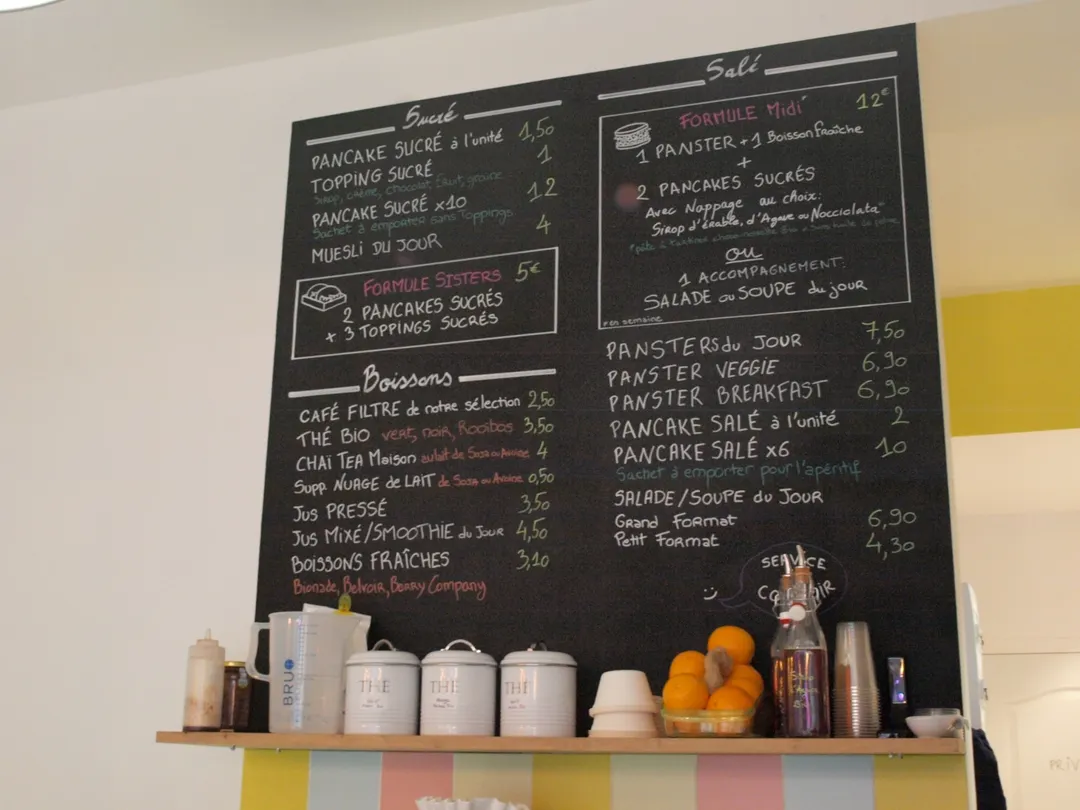 Sucré
PANCAKE SUCRÉ à l'unité 1,50
TOPPING SUCRÉ 1
Sirop, crème, chocolat, fruit, graine
PANCAKE SUCRÉ x10 12
Sachet à emporter sans Toppings
MUESLI DU JOUR 4
FORMULE SISTERS 5€
2 PANCAKES SUCRÉS
+ 3 TOPPINGS SUCRÉS
Boissons
CAFÉ FILTRE de notre sélection 2,50
THÉ BIO vert, noir, Rooibos 3,50
CHAÏ TEA Maison au lait de Soja ou Avoine 4
Supp. NUAGE de LAIT de Soja ou Avoine 0,50
JUS PRESSÉ 3,50
JUS MIXÉ/SMOOTHIE du Jour 4,50
BOISSONS FRAÎCHES 3,10
Bionade, Belvoir, Berry Company
Salé
FORMULE Midi 12€
1 PANSTER + 1 Boisson fraîche
+
2 PANCAKES SUCRÉS
Avec Nappage au choix:
Sirop d'érable, d'Agave ou Nocciolata*
ou
1 ACCOMPAGNEMENT:
SALADE ou SOUPE du jour
*en semaine
PANSTERS du JOUR 7,50
PANSTER VEGGIE 6,90
PANSTER BREAKFAST 6,90
PANCAKE SALÉ à l'unité 2
PANCAKE SALÉ x6 10
Sachet à emporter pour l'apéritif
SALADE/SOUPE du JOUR
Grand Format 6,90
Petit Format 4,30
SERVICE
BRU
THÉ
THÉ
THÉ
PRIV